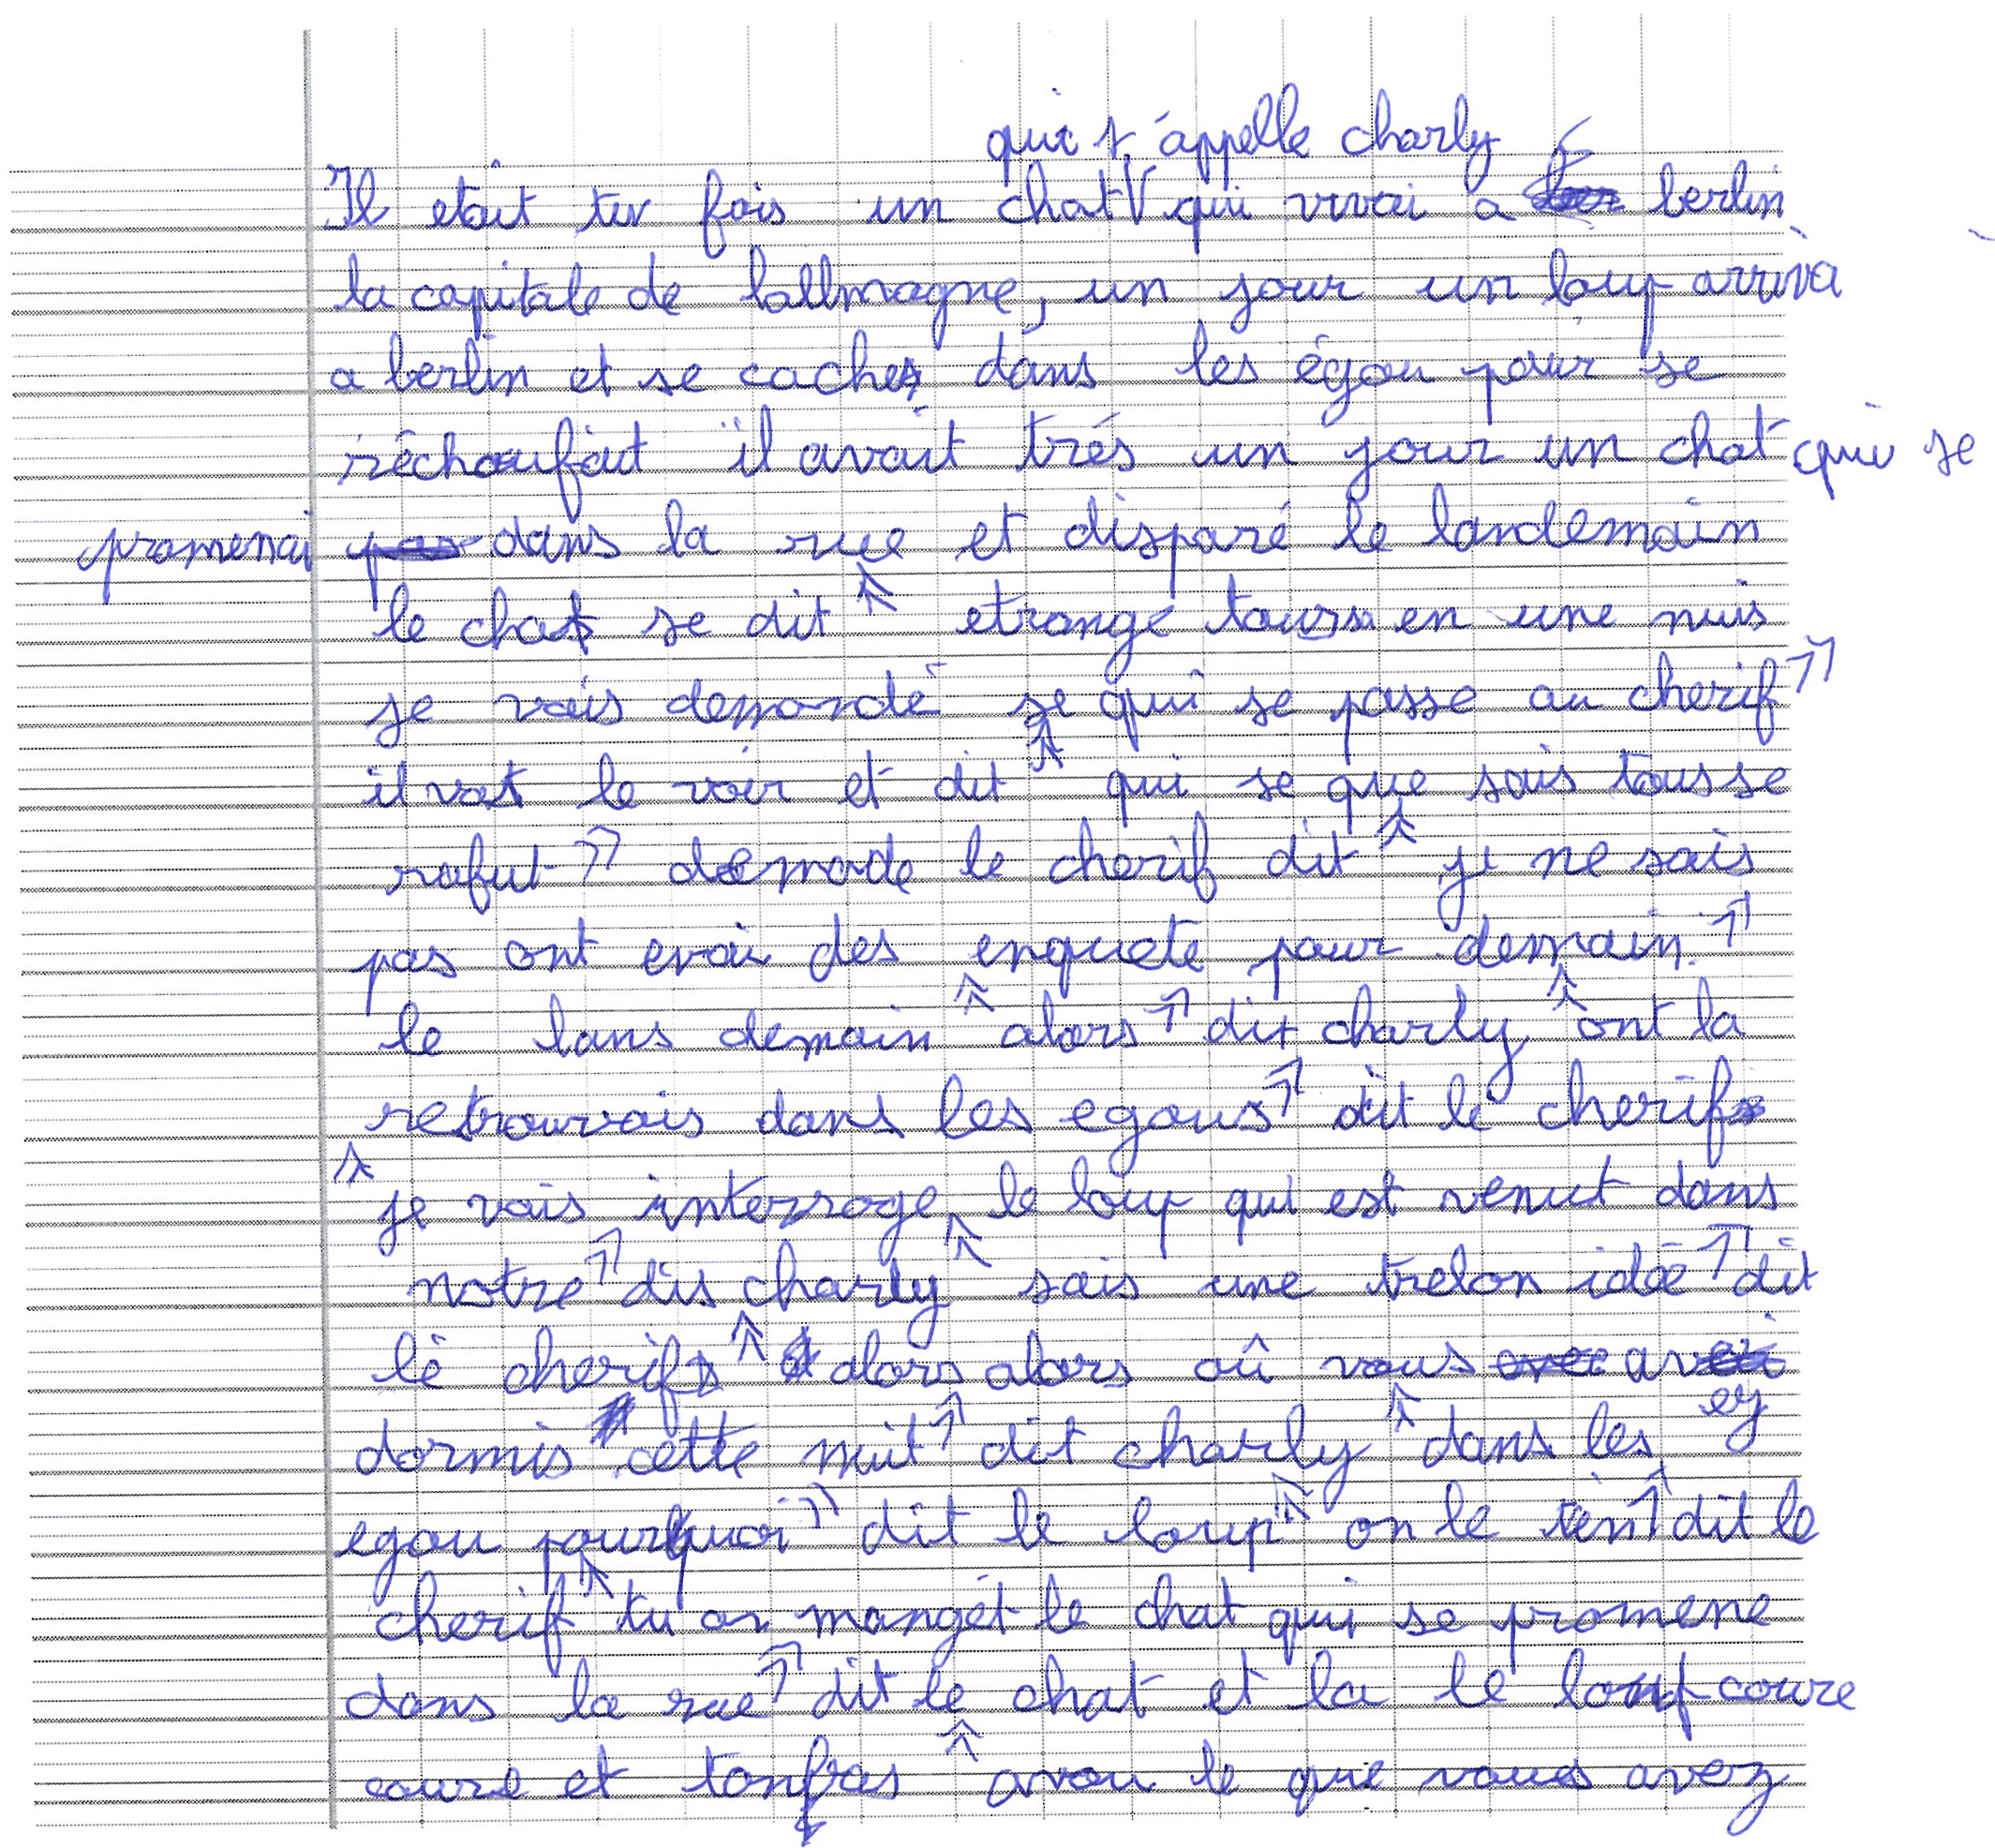 qui s'appelle charly
Il etait fois un chat qui vivai a berlin
la capitale de lallmagne, un jour un loup arriva
a berlin et se caches dans les égou pour se
réchoufait il avait trés un jour un chat qui se
promenai dans la rue et disparé le landemain
le chat se dit « etrange tours en une nuis
je vais demandé se qui se passe au cherif »
il vat le voir et dit « qui se que sais tousse
rafut » demade le cherif dit « je ne sais
pas ont evai des enquete pour demain. »
le lans demain « alors » dit charly « ont la
retrouvais dans les egous » dit le cherif
« je vais interroge le loup qui est venut dans
notre » dis charly « sais une trelon idée » dit
le cherif « alors alors oû vous avez
dormis cette nuit » dit charly « dans les
egou pourquoi » dit le loup « on le tien » dit le
cherif « tu as mangét le chat qui se promene
dans la rue » dit le chat et la le loup coure
coure et tonfras « avou le que vous avez